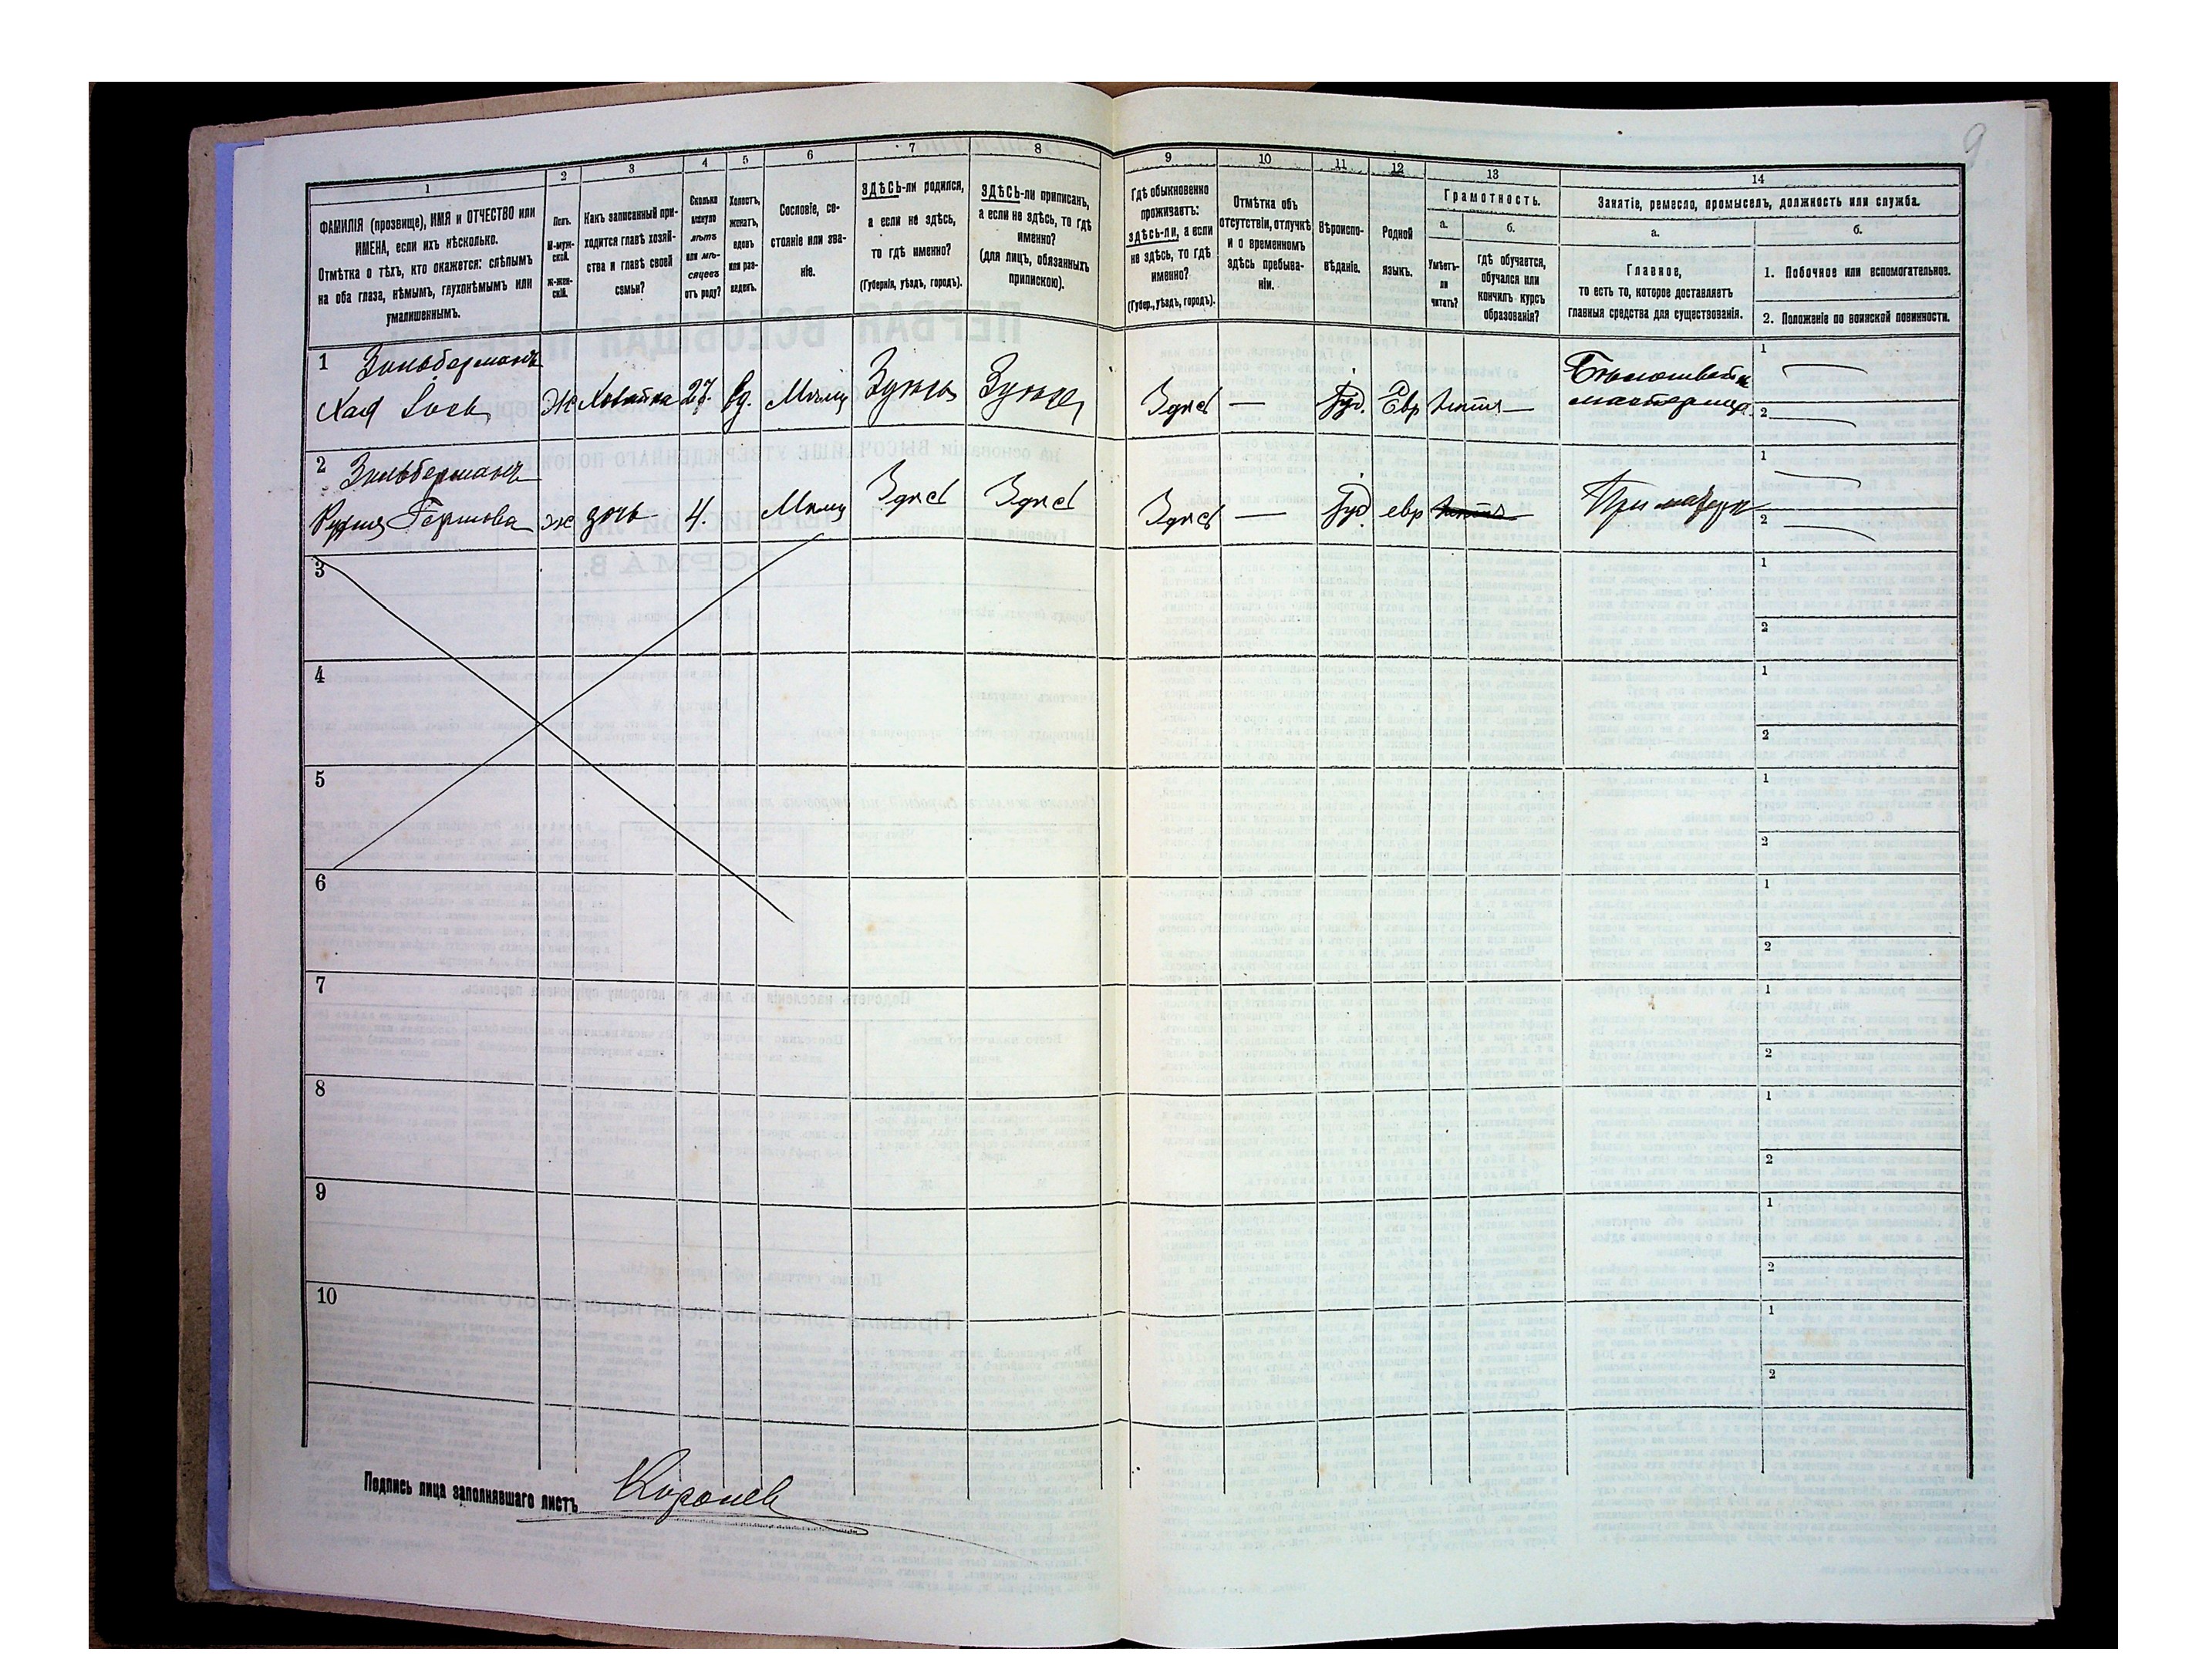 9
1
ФАМИЛІЯ (прозвище), ИМЯ и ОТЧЕСТВО или
ИМЕНА, если ихъ нѣсколько.
Отмѣтка о тѣхъ, кто окажется: слѣпымъ
на оба глаза, нѣмымъ, глухонѣмымъ или
умалишеннымъ.
2
Полъ.
М-муж-
ской.
Ж-жен-
скій.
3
Какъ записанный при-
ходится главѣ хозяй-
ства и главѣ своей
семьи?
4
Сколько
минуло
лѣтъ
или мѣ-
сяцевъ
отъ роду?
5
Холостъ,
женатъ,
вдовъ
или раз-
веденъ.
6
Сословіе, со-
стояніе или зва-
ніе.
7
ЗДѢСЬ-ли родился,
а если не здѣсь,
то гдѣ именно?
(Губернія, уѣздъ, городъ).
8
ЗДѢСЬ-ли приписанъ,
а если не здѣсь, то гдѣ
именно?
(для лицъ, обязанныхъ
припискою).
9
Гдѣ обыкновенно
проживаетъ:
здѣсь-ли, а если
не здѣсь, то гдѣ
именно?
(Губер., уѣздъ, городъ).
10
Отмѣтка объ
отсутствіи, отлучкѣ
и о временномъ
здѣсь пребыва-
ніи.
11
Вѣроиспо-
вѣданіе.
12
Родной
языкъ.
13
Грамотность.
а.
Умѣетъ-
ли
читать?
б.
гдѣ обучается,
обучался или
кончилъ курсъ
образованія?
14
Занятіе, ремесло, промыселъ, должность или служба.
а.
Главное,
то есть то, которое доставляетъ
главныя средства для существованія.
б.
1. Побочное или вспомогательное.
2. Положеніе по воинской повинности.
1
Зильберманъ
Хая
Ж
27.
Вд.
Мѣщ
Здѣсь
—
Іуд.
Евр
Бѣлошвейн
мастерица
1
2
2
Зильберманъ
Гершова
ж
дочь
4.
Мѣщ
Здѣсь
Здѣсь
Здѣсь
—
Іуд
евр
При матери
1
2
3
1
2
4
1
2
5
1
2
6
1
2
7
1
2
8
1
2
9
1
2
10
1
2
Подпись лица заполнявшаго листъ